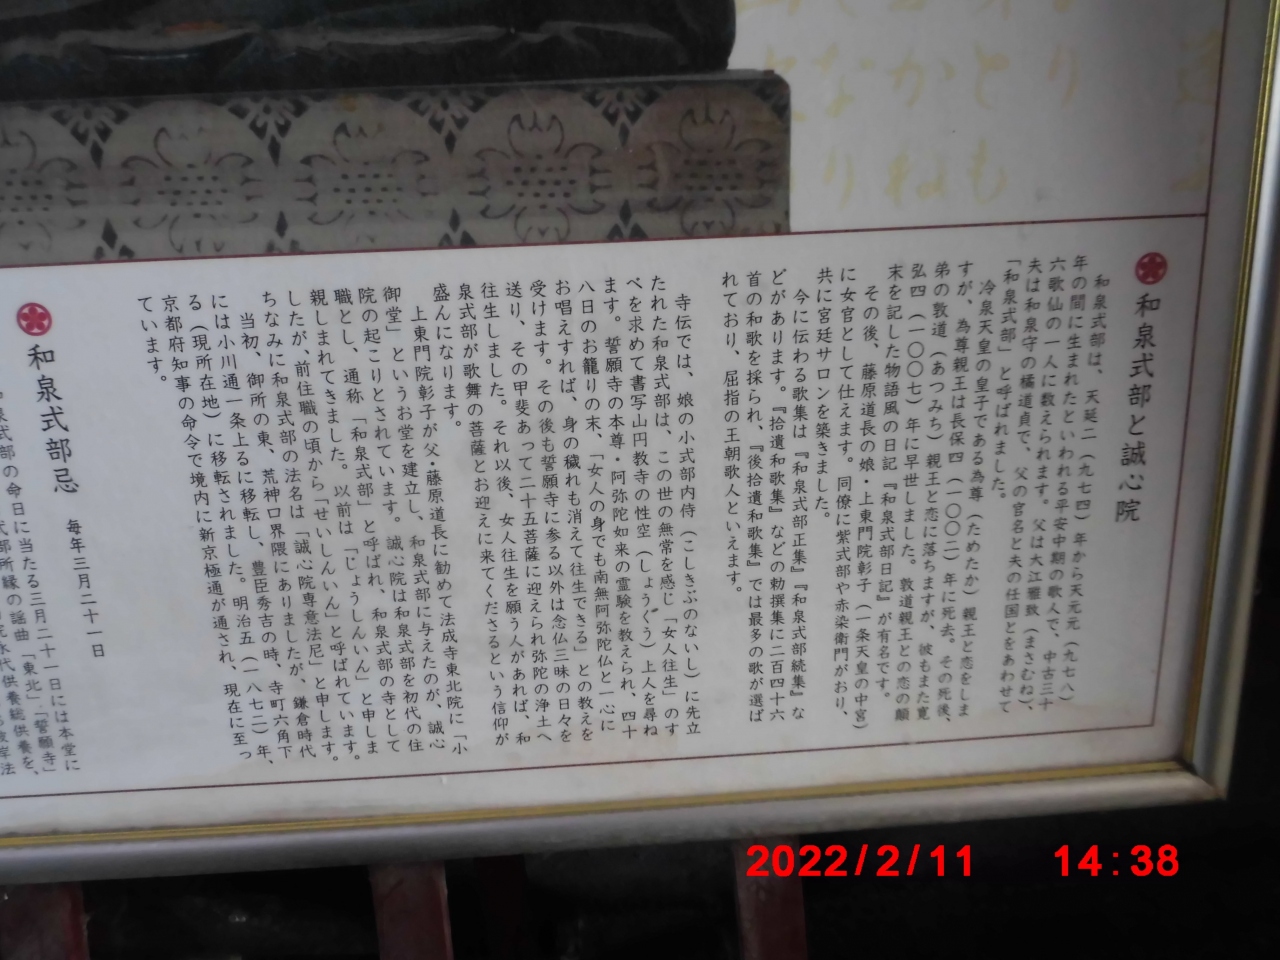 和泉式部と誠心院
和泉式部は、天延二（九七四）年から天元元（九七八）
年の間に生まれたといわれる平安中期の歌人で、中古三十
六歌仙の一人に数えられます。父は大江雅致（まさむね）、
夫は和泉守の橘道貞で、父の官名と夫の任国とをあわせて
「和泉式部」と呼ばれました。
冷泉天皇の皇子である為尊（ためたか）親王と恋をしま
すが、為尊親王は長保四（一〇〇二）年に死去。その死後、
弟の敦道（あつみち）親王と恋に落ちますが、彼もまた寛
弘四（一〇〇七）年に早世しました。敦道親王との恋の顛
末を記した物語風の日記『和泉式部日記』が有名です。
その後、藤原道長の娘・上東門院彰子（一条天皇の中宮）
に女官として仕えます。同僚に紫式部や赤染衛門がおり、
共に宮廷サロンを築きました。
今に伝わる歌集は『和泉式部正集』『和泉式部続集』な
どがあります。『拾遺和歌集』などの勅撰集に二百四十六
首の和歌を採られ、『後拾遺和歌集』では最多の歌が選ば
れており、屈指の王朝歌人といえます。
寺伝では、娘の小式部内侍（こしきぶのないし）に先立
たれた和泉式部は、この世の無常を感じ「女人往生」のす
べを求めて書写山円教寺の性空（しょうくう）上人を尋ね
ます。誓願寺の本尊・阿弥陀如来の霊験を教えられ、四十
八日のお籠りの末、「女人の身でも南無阿弥陀仏と一心に
お唱えすれば、身の穢れも消えて往生できる」との教えを
受けます。その後も誓願寺に参る以外は念仏三昧の日々を
送り、その甲斐あって二十五菩薩に迎えられ弥陀の浄土へ
往生しました。それ以後、女人往生を願う人があれば、和
泉式部が歌舞の菩薩とお迎えに来てくださるという信仰が
盛んになります。
上東門院彰子が父・藤原道長に勧めて法成寺東北院に「小
御堂」というお堂を建立し、和泉式部に与えたのが、誠心
院の起こりとされています。誠心院は和泉式部を初代の住
職とし、通称「和泉式部」と呼ばれ、和泉式部の寺として
親しまれてきました。以前は「じょうしんいん」と申しま
したが、前住職の頃から「せいしんいん」と呼ばれています。
ちなみに和泉式部の法名は「誠心院専意法尼」と申します。
当初、御所の東、荒神口界隈にありましたが、鎌倉時代
には小川通一条上るに移転し、豊臣秀吉の時、寺町六角下
る（現所在地）に移転されました。明治五（一八七二）年、
京都府知事の命令で境内に新京極通が通され、現在に至っ
ています。
和泉式部忌 毎年三月二十一日
式部の命日に当たる三月二十一日には本堂に
式部所縁の謡曲「東北」「誓願寺」
永代供養総供養を、
2022/2/11 14:38